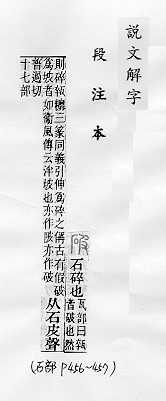 說文解字
段注本
破
石碎也
瓦部曰
者破也然
則碎三篆同義引伸爲碎之偁古有假破
爲坡者如衞風傳云泮坡也亦作陂亦作破
从石皮聲
普過切
十七部
(石部 P456~457)